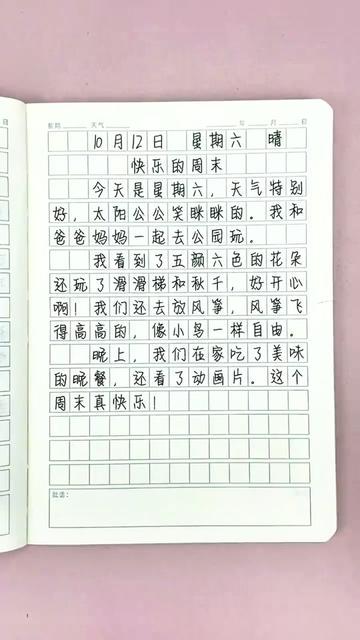 星期 天气 年 月 日
10月12日 星期六 晴
快乐的周末
今天是星期六，天气特别
好，太阳公公笑眯眯的。我和
爸爸妈妈一起去公园玩。
我看到了五颜六色的花朵
还玩了滑滑梯和秋千，好开心
啊！我们还去放风筝，风筝飞
得高高的，像小鸟一样自由。
晚上，我们在家吃了美味
的晚餐，还看了动画片。这个
周末真快乐！
批语：